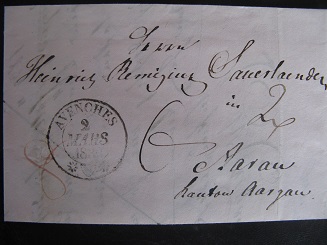 Herrn
Heinrich Remigius Sauerlaender
in
Aarau
Kanton Aargau
6
AVENCHES
9
MARS